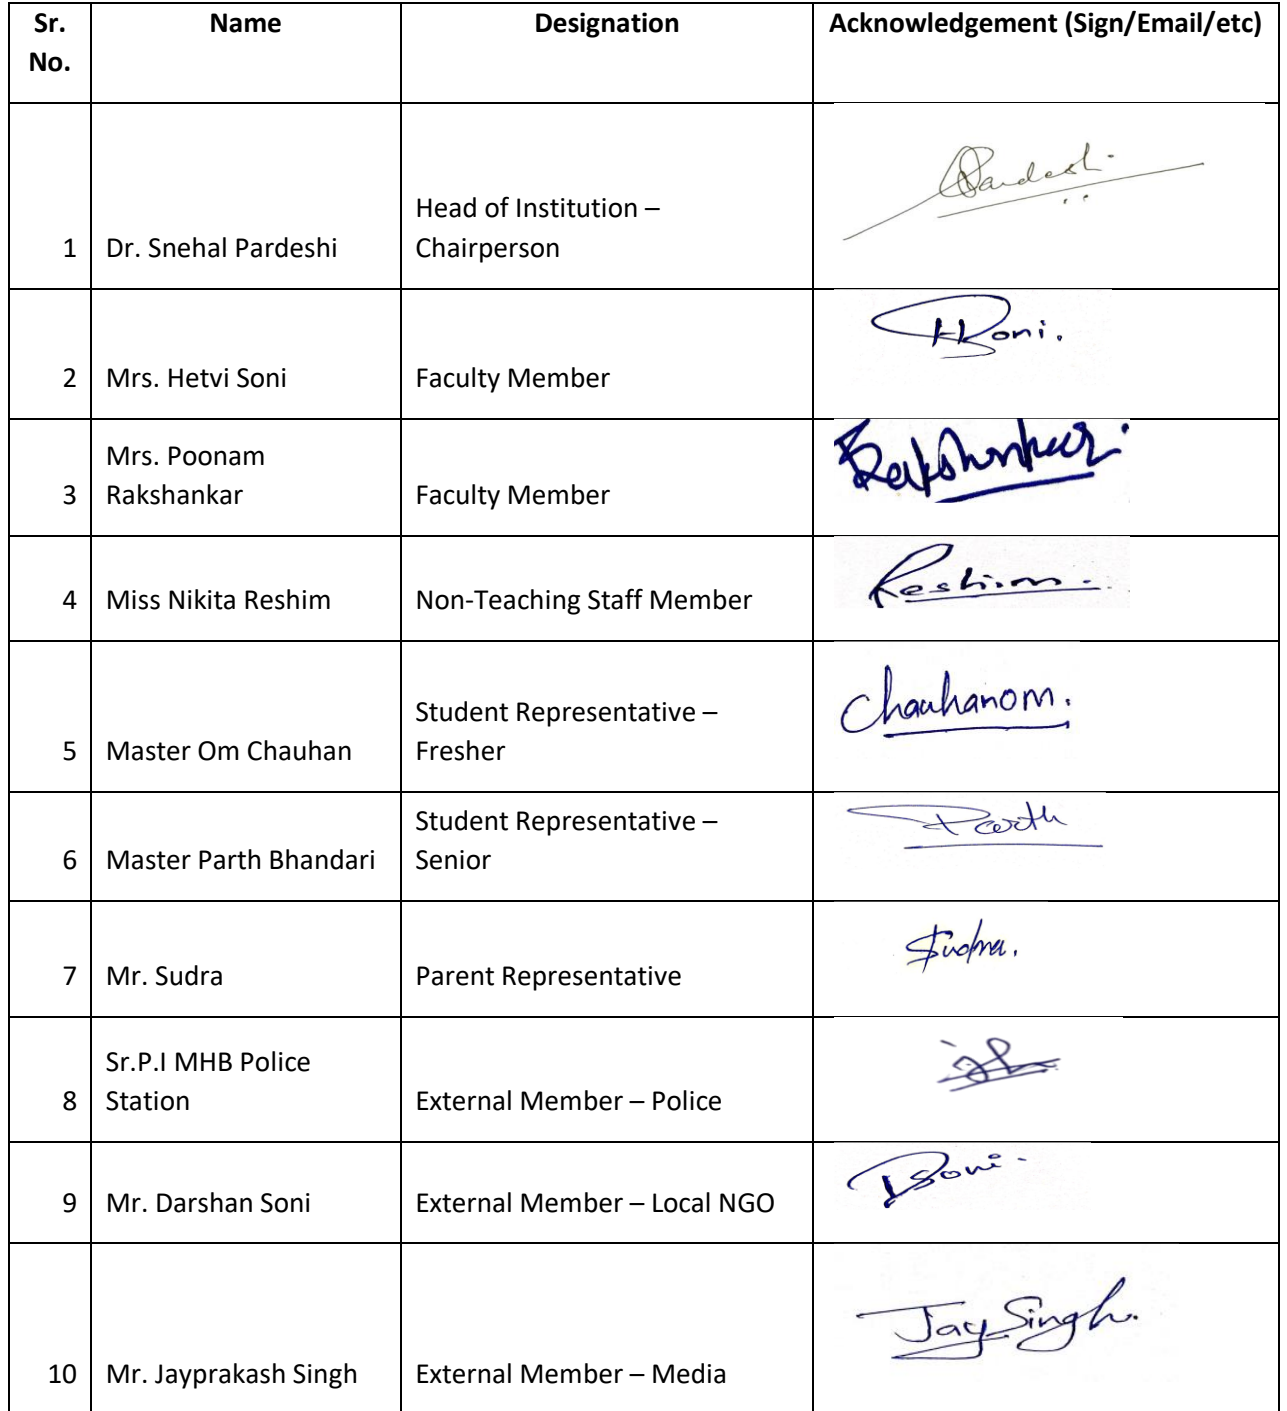 Sr. No. Name Designation Acknowledgement (Sign/Email/etc)
1 Dr. Snehal Pardeshi Head of Institution – Chairperson Pardeshi
2 Mrs. Hetvi Soni Faculty Member HSoni.
3 Mrs. Poonam Rakshankar Faculty Member Rakshankar
4 Miss Nikita Reshim Non-Teaching Staff Member Reshim
5 Master Om Chauhan Student Representative – Fresher Chauhanom.
6 Master Parth Bhandari Student Representative – Senior Parth
7 Mr. Sudra Parent Representative Sudra.
8 Sr.P.I MHB Police Station External Member – Police
9 Mr. Darshan Soni External Member – Local NGO DSoni
10 Mr. Jayprakash Singh External Member – Media Jay Singh.